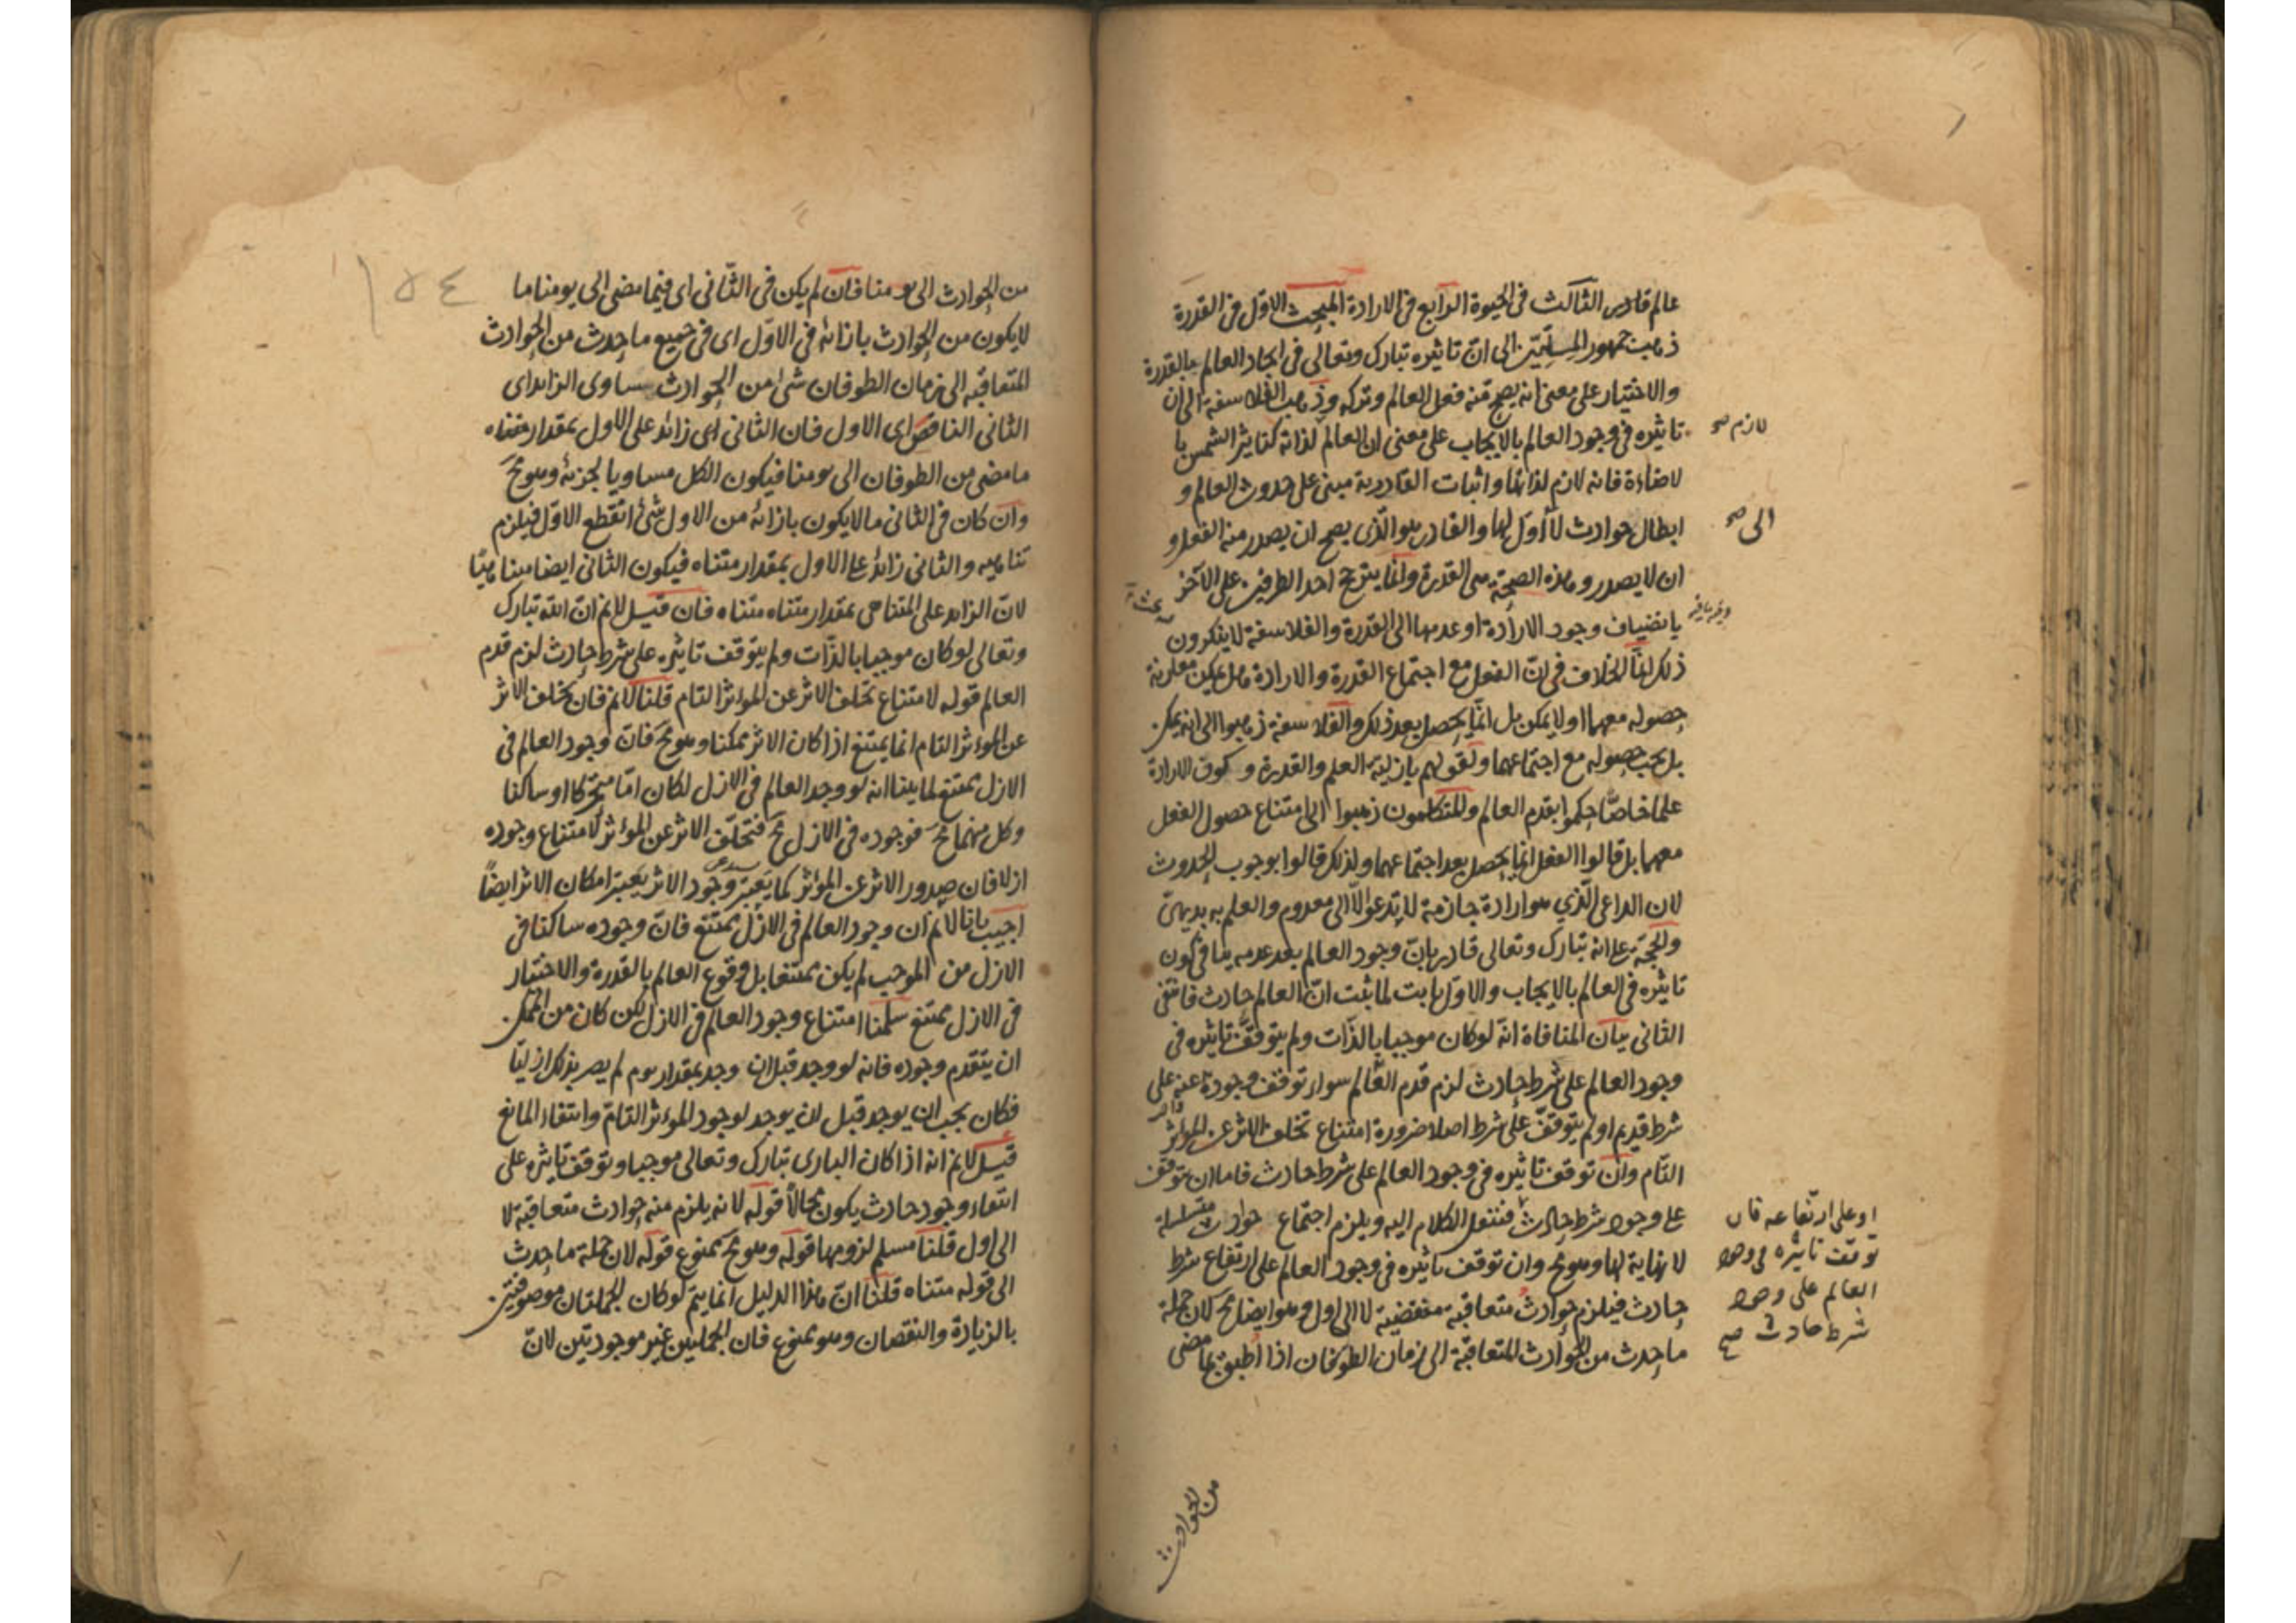 عالم قادر الثالث فى الحيوة الرابع فى الارادة المبحث الاول فى القدرة
ذهب جمهور المسلمين الى ان تاثيره تبارك وتعالى فى ايجاد العالم بالقدرة
والاختيار على معنى انه يصح منه فعل العالم وتركه وذهب الفلاسفة الى ان
تاثيره فى وجود العالم بالايجاب على معنى ان العالم لذاته كتاثير الشمس با
لازم صح
لاضاءة فانه لازم لذاتها واثبات القادرية مبنى على حدوث العالم و
ابطال حوادث لا اول لها والقادر هو الذى يصح ان يصدر منه الفعل و
الى صح
ان لا يصدر وهذه الصحة هى القدرة وانما يترجح احد الطرفين على الآخر
بانضياف وجود الارادة او عدمها الى القدرة والفلاسفة لا ينكرون
ذلك انما الخلاف فى ان الفعل مع اجتماع القدرة والارادة هل يمكن مقارنة
حصوله معهما او لا يمكن بل انما يحصل بعد ذلك والفلاسفة ذهبوا الى انه يمكن
بل يجب حصوله مع اجتماعهما ولقولهم بازلية العلم والقدرة وكون الارادة
علما خاصا حكموا بقدم العالم والمتكلمون ذهبوا الى امتناع حصول الفعل
معهما بل قالوا الفعل انما يحصل بعد اجتماعهما ولذلك قالوا بوجوب الحدوث
لان الداعى الذي هو ارادة جازمة لا يدعو الا الى معدوم والعلم به بديهى
والحجة على انه تبارك وتعالى قادر بان وجود العالم بعد عدمه ينافى كون
تاثيره فى العالم بالايجاب والاول ثابت لما ثبت ان العالم حادث فانتفى
الثانى بيان المنافاة انه لو كان موجبا بالذات ولم يتوقف تاثيره فى
وجود العالم على شرط حادث لزم قدم العالم سواء توقف وجوده عنه على
شرط قديم او لم يتوقف على شرط اصلا ضرورة امتناع تخلف الاثر عن المؤثر
التام وان توقف تاثيره فى وجود العالم على شرط حادث فاما ان توقف
على وجود شرط حادث فننقل الكلام اليه ويلزم اجتماع حوادث متسلسلة
لا نهاية لها وهو مح وان توقف تاثيره فى وجود العالم على ارتفاع شرط
حادث فيلزم حوادث متعاقبة منقضية لا الى اول وهو ايضا مح لان جملة
ما حدث من الحوادث المتعاقبة الى زمان الطوفان اذا اطبق بما مضى
او على ارتفاعه فان
توقف تاثيره فى وجود
العالم على وجود
شرط حادث صح
من الحوادث
١٥٤
من الحوادث الى يومنا فان لم يكن فى الثانى اى فيما مضى الى يومنا ما
لا يكون من الحوادث بازائه فى الاول اى فى جميع ما حدث من الحوادث
المتعاقبة الى زمان الطوفان شئ من الحوادث يساوى الزائد اى
الثانى الناقص اى الاول فان الثانى اى زائد على الاول بمقدار متناه
ما مضى من الطوفان الى يومنا فيكون الكل مساويا لجزئه وهو مح
وان كان فى الثانى ما لا يكون بازائه من الاول شئ انقطع الاول فيلزم
تناهيه والثانى زائد على الاول بمقدار متناه فيكون الثانى ايضا متناهيا
لان الزائد على المتناهى بمقدار متناه متناه فان قيل لا نم ان الله تبارك
وتعالى لو كان موجبا بالذات ولم يتوقف تاثيره على شرط حادث لزم قدم
العالم قوله لامتناع تخلف الاثر عن المؤثر التام قلنا لا نم فان تخلف الاثر
عن المؤثر التام انما يمتنع اذا كان الاثر ممكنا وهو مح فان وجود العالم فى
الازل ممتنع لما بينا انه لو وجد العالم فى الازل لكان اما متحركا او ساكنا
وكل منهما مح فوجوده فى الازل مح فتخلف الاثر عن المؤثر لامتناع وجوده
ازلا فان صدور الاثر عن المؤثر كما يعتبر وجود الاثر يعتبر امكان الاثر ايضاً
اجيب بانا لا نم ان وجود العالم فى الازل ممتنع فان وجوده ساكنا فى
الازل من الموجب لم يكن ممتنعا بل وقوع العالم بالقدرة والاختيار
فى الازل ممتنع سلمنا امتناع وجود العالم فى الازل لكن كان من الممكن
ان يتقدم وجوده فانه لو وجد قبل ان وجد بمقدار يوم لم يصر بذلك ازليا
فكان يجب ان يوجد قبل لان يوجد لوجود المؤثر التام وانتفاء المانع
قيل لا نم انه اذا كان البارى تبارك وتعالى موجبا وتوقف تاثيره على
انتفاء وجود حادث يكون محالا قوله لانه يلزم منه حوادث متعاقبة لا
الى اول قلنا مسلم لزومها قوله وهو مح ممنوع قوله لان جملة ما حدث
الى قوله متناه قلنا ان هذا الدليل انما يتم لو كان الجملتان موصوفتين
بالزيادة والنقصان وهو ممنوع فان الجملتين غير موجودتين لان